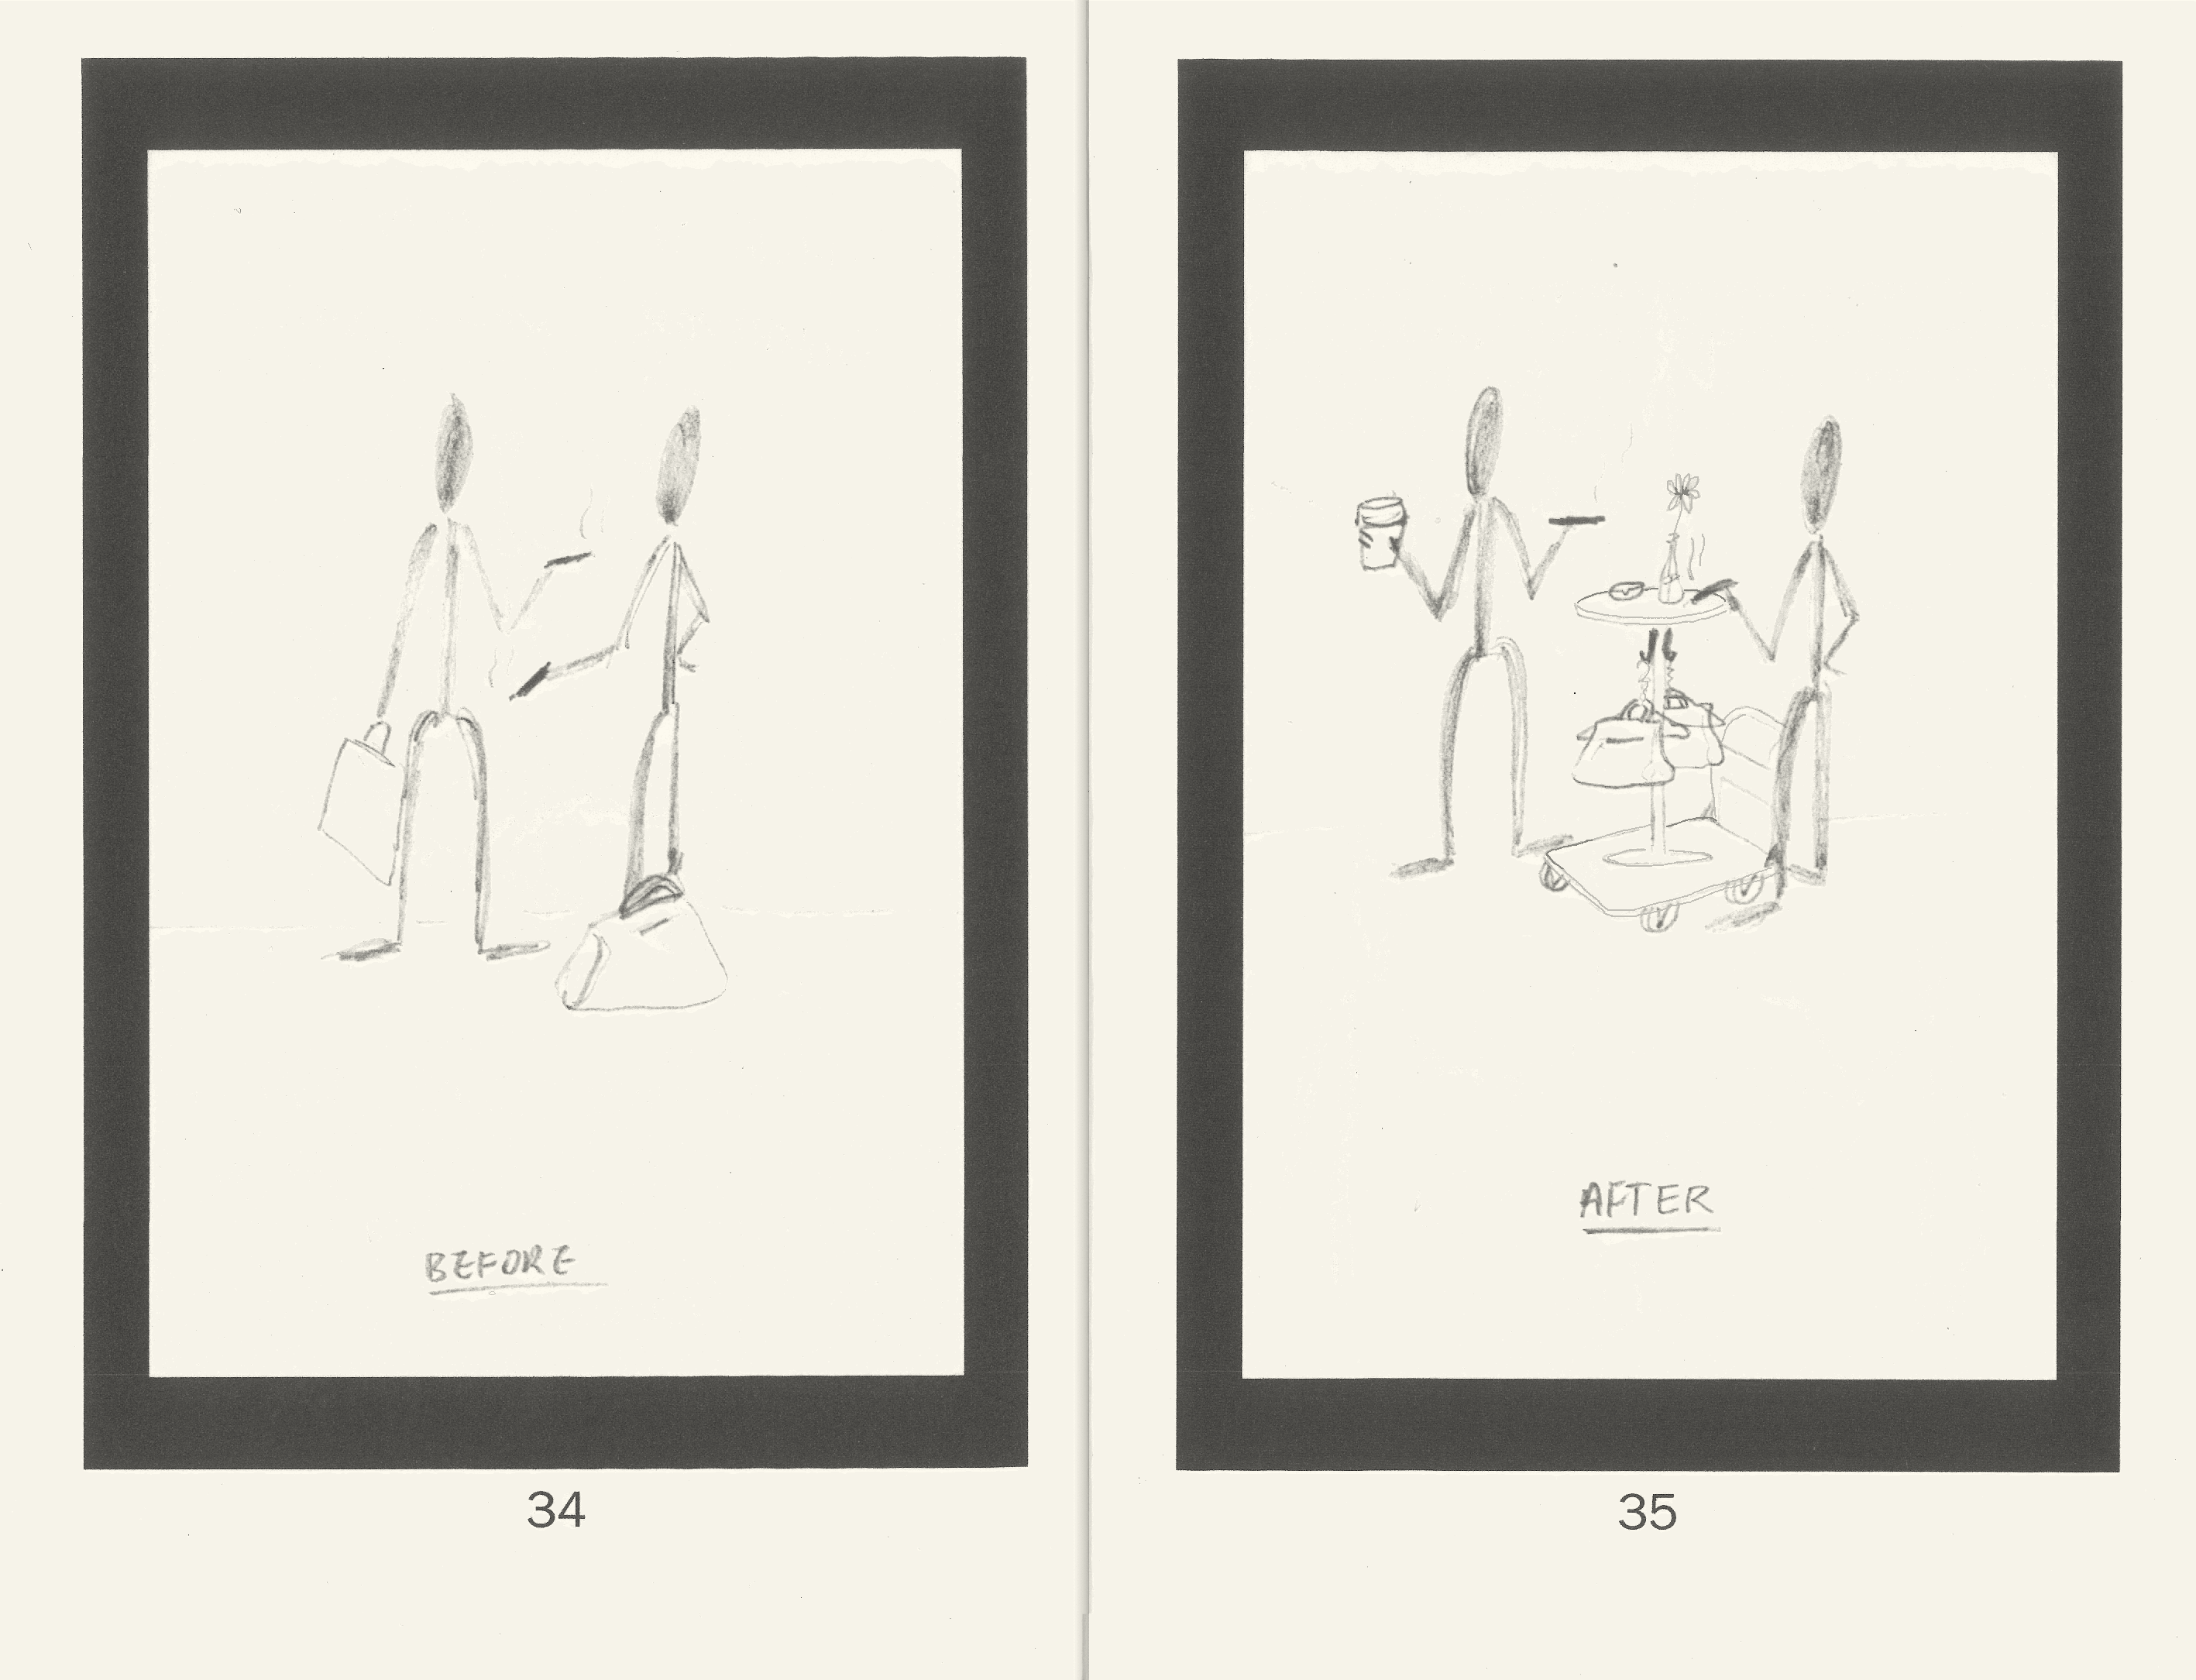 BEFORE
34
AFTER
35